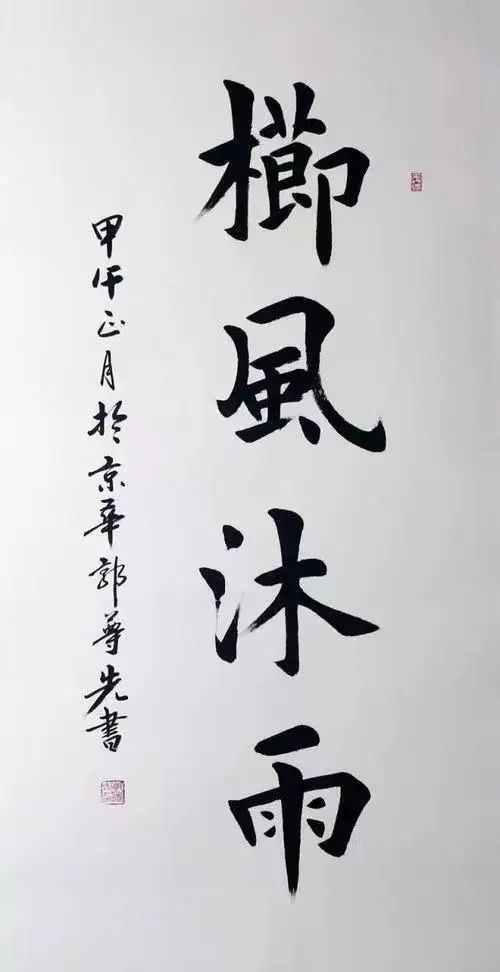 櫛風沐雨
甲午正月於京華郭尊先書